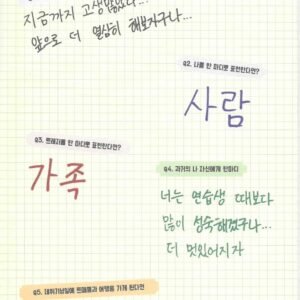 지금까지 고생많았다...
앞으로 더 열심히 해보자구나...
Q2. 나를 한 마디로 표현한다면?
사람
Q3. 트레저를 한 마디로 표현한다면?
가족
Q4. 과거의 나 자신에게 한마디
너는 연습생 때보다
많이 성숙해졌구나...
더 멋있어지자
Q5. 데뷔기념일에 트메들과 여행을 가게 된다면